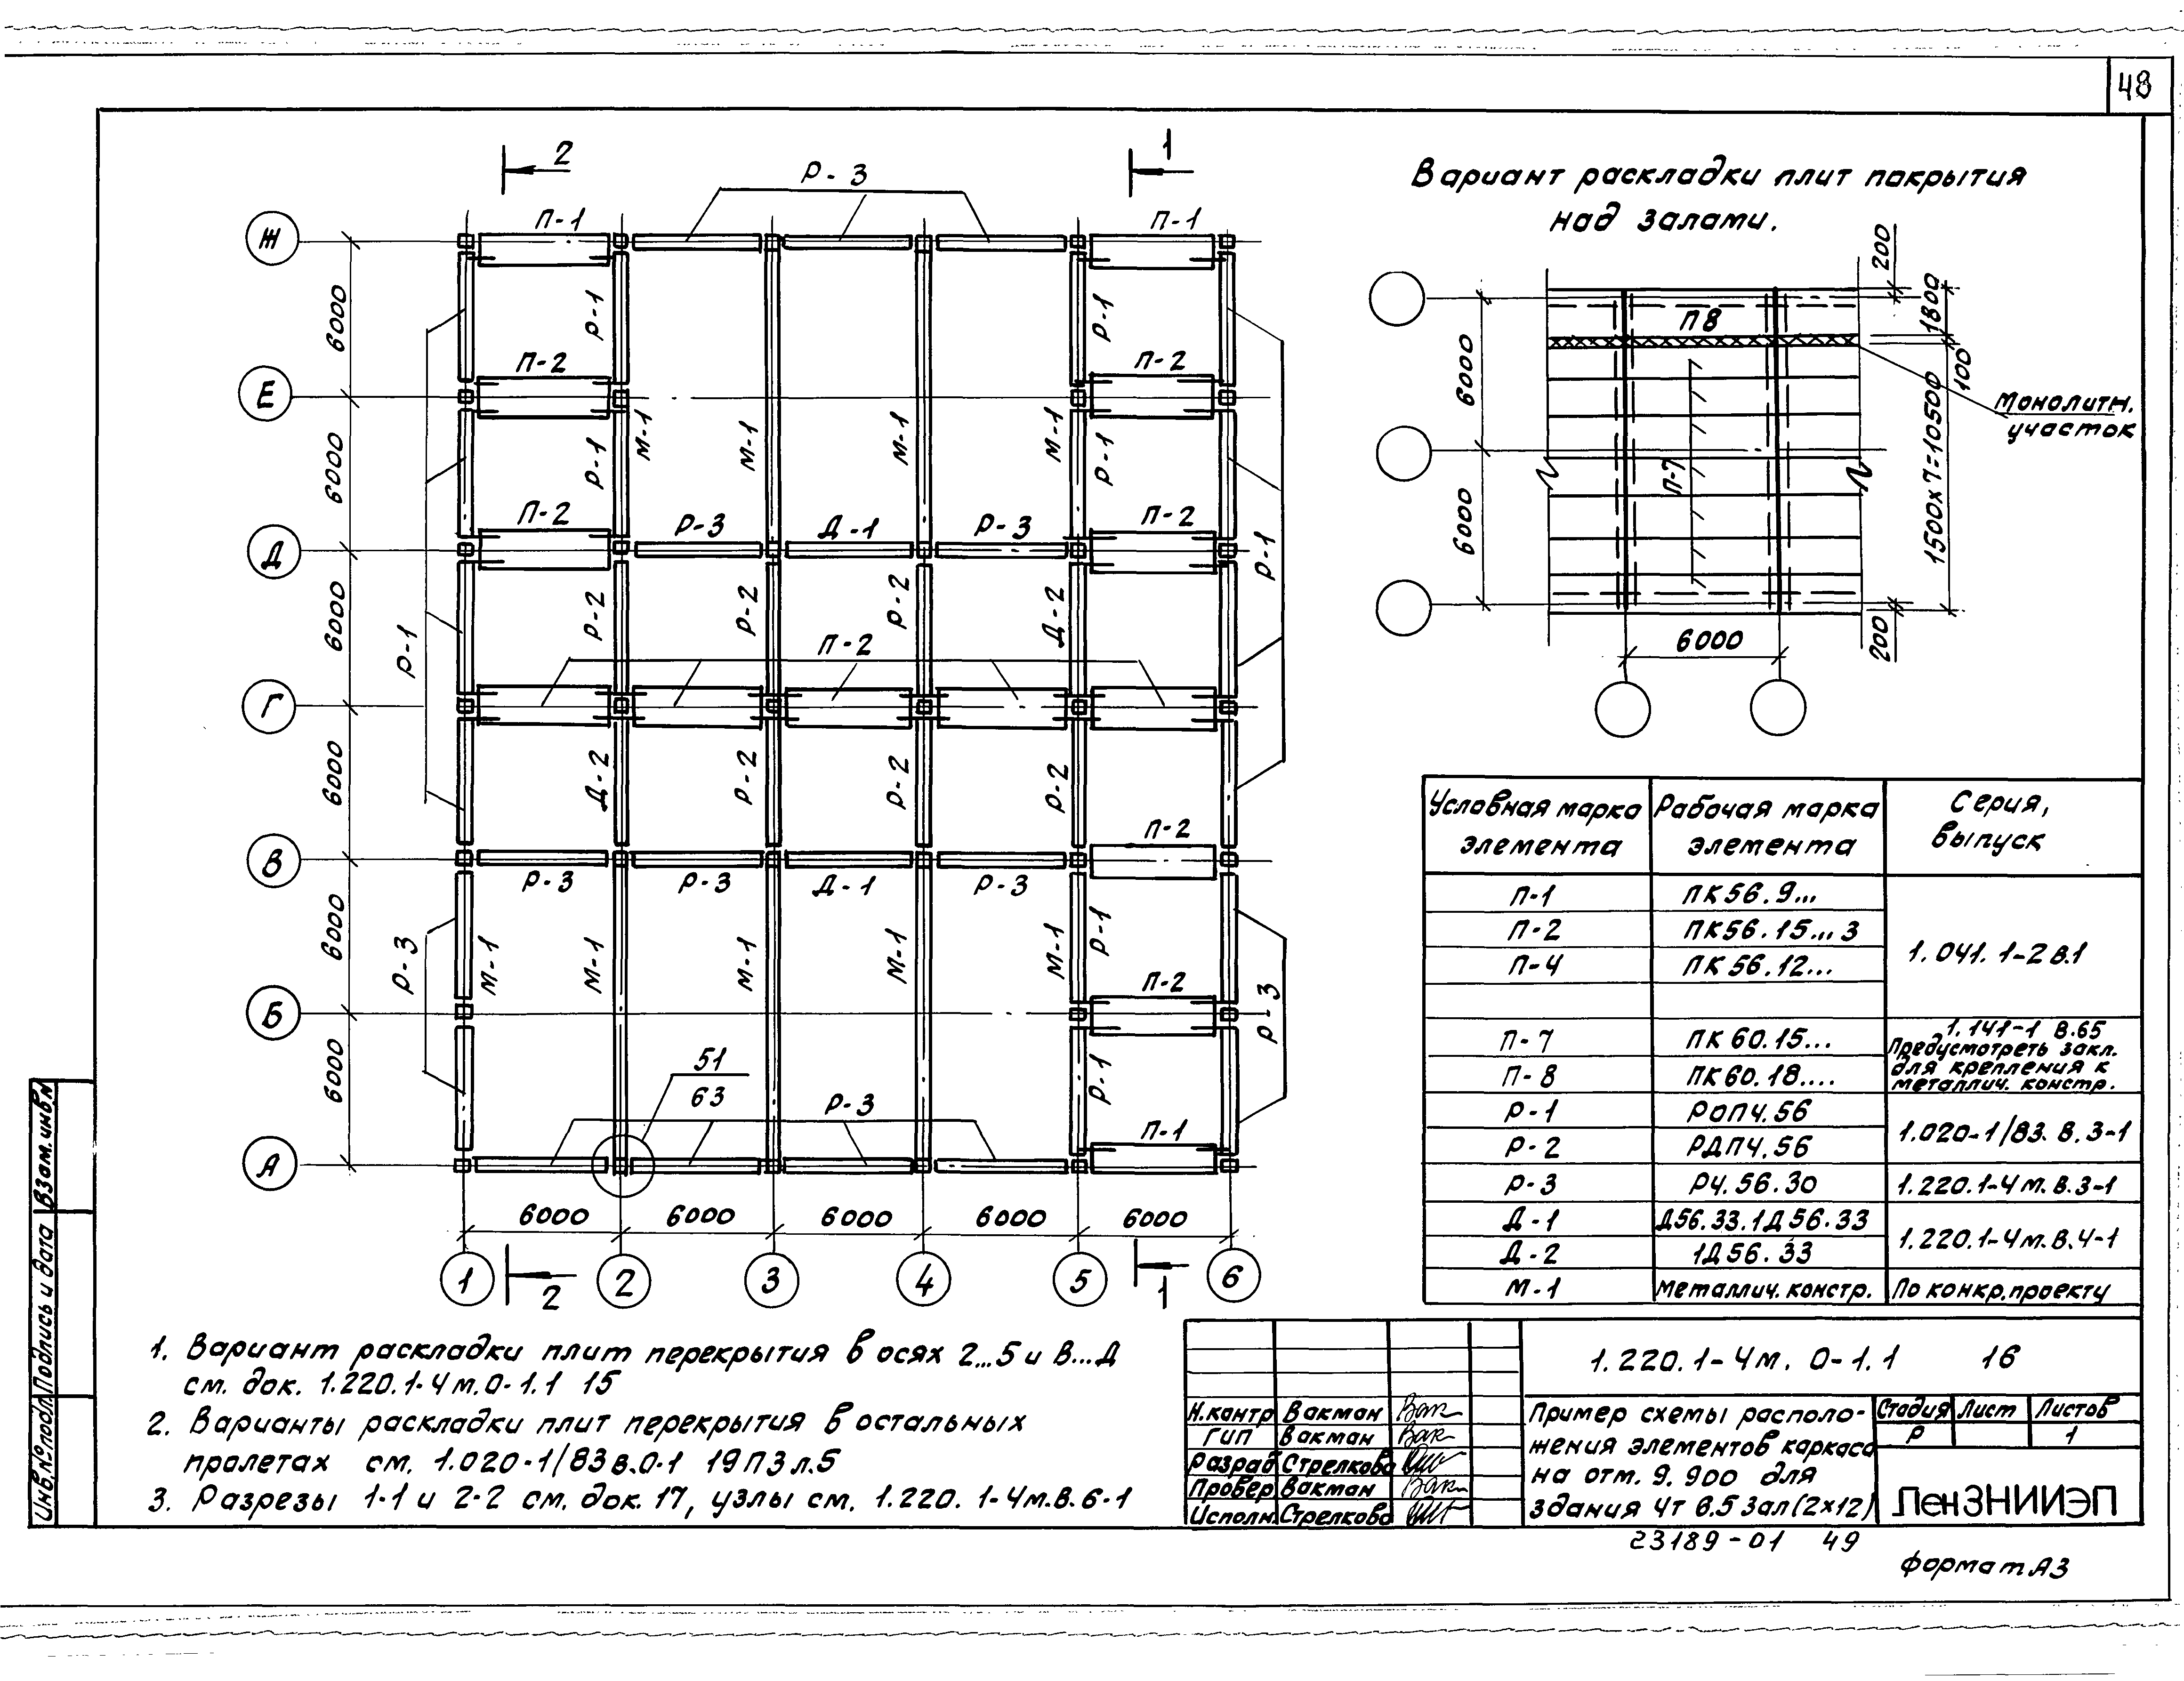 48
2
1
Р-3
П-1
П-1
Ж
Р-1
Р-1
6000
П-2
П-2
Е
М-1
М-1
М-1
М-1
Р-1
Р-1
6000
П-2
Р-3
Д-1
Р-3
П-2
Д
Р-1
Р-2
Р-2
Р-2
Д-2
Р-1
6000
П-2
Г
Д-2
Р-2
Р-2
Р-2
6000
П-2
В
Р-3
Р-3
Д-1
Р-3
Р-3
М-1
М-1
М-1
М-1
М-1
Р-1
6000
П-2
Р-3
Б
51
63
Р-3
Р-1
6000
П-1
А
6000
6000
6000
6000
6000
1
2
3
4
5
6
2
1
Вариант раскладки плит покрытия
над залами.
200
1800
П8
100
6000
Монолитн.
участок
П-7
1500х7=10500
6000
6000
200
Условная марка элемента
Рабочая марка элемента
Серия, выпуск
П-1
ПК56.9...
П-2
ПК56.15...3
П-4
ПК56.12...
1.041.1-2 в.1
П-7
ПК60.15...
П-8
ПК60.18....
1.141-1 В.65
Предусмотреть закл.
для крепления к
металлич. констр.
Р-1
РОП4.56
Р-2
РДП4.56
1.020-1/83. В.3-1
Р-3
Р4.56.30
1.220.1-4м.В.3-1
Д-1
Д56.33.1Д56.33
Д-2
1Д56.33
1.220.1-4м.В.4-1
М-1
Металлич. констр.
По конкр. проекту
1. Вариант раскладки плит перекрытия в осях 2...5 и В...Д
см. док. 1.220.1-4м.0-1.1 15
2. Варианты раскладки плит перекрытия в остальных
пролетах см. 1.020-1/83 в.0-1 19ПЗ л.5
3. Разрезы 1-1 и 2-2 см. док. 17, узлы см. 1.220.1-4м.В.6-1
1.220.1-4м. 0-1.1 16
Н.контр Вакман Вак
ГИП Вакман Вак
Разраб Стрелкова
Провер Вакман Вак
Исполн Стрелкова
Пример схемы располо-
жения элементов каркаса
на отм. 9.900 для
здания 4т в.5 Зал(2х12)
Стадия Лист Листов
Р 1
ЛенЗНИИЭП
23189-01 49
Формат А3
Взам.инв.№
Подпись и дата
Инв.№подл.